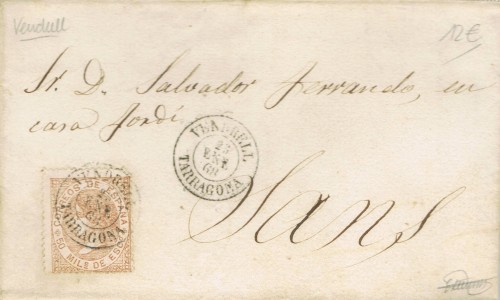 Vendrell
12€
Sr. D. Salvador Ferrando, en
casa Jordí
VENDRELL
23
ENE
68
TARRAGONA
CORREOS DE ESPAÑA
50 MILS DE ESCO
TARRAGONA
Sans